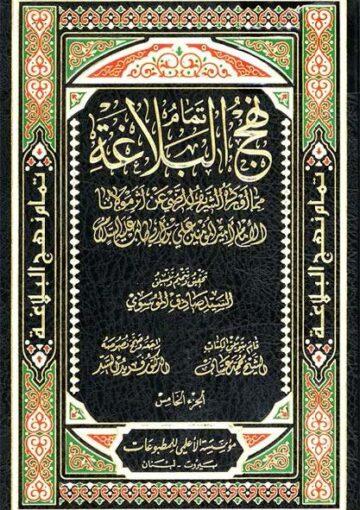 تمام
نهج البلاغة
مما أورده الشريف الرضي عن أثر مولانا
الإمام أمير المؤمنين علي بن أبي طالب عليه السلام
تحقيق وتتميم وتنسيق
السيد صادق الموسوي
قام بتوثيق الكتاب
الشيخ محمد عساف
راجعه وصحح نصوصه
الدكتور فريد السيد
الجزء الخامس
مؤسسة الأعلمي للمطبوعات
بيروت - لبنان
تمام نهج البلاغة
تمام نهج البلاغة